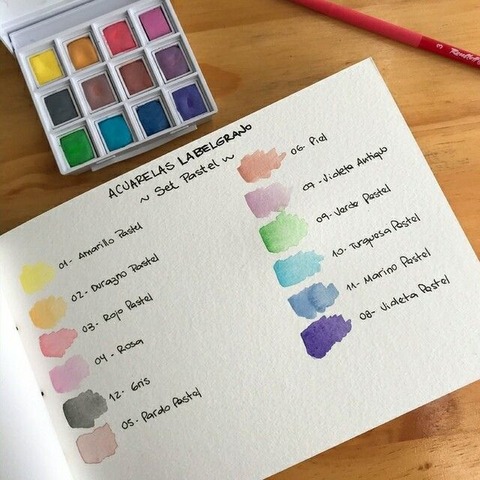 ACUARELAS LABELGRANO
~ Set Pastel ~
01- Amarillo Pastel
02- Durazno Pastel
03- Rojo Pastel
04- Rosa
12- Gris
05- Pardo Pastel
06- Piel
07- Violeta Antiguo
09- Verde Pastel
10- Turquesa Pastel
11- Marino Pastel
08- Violeta Pastel
3